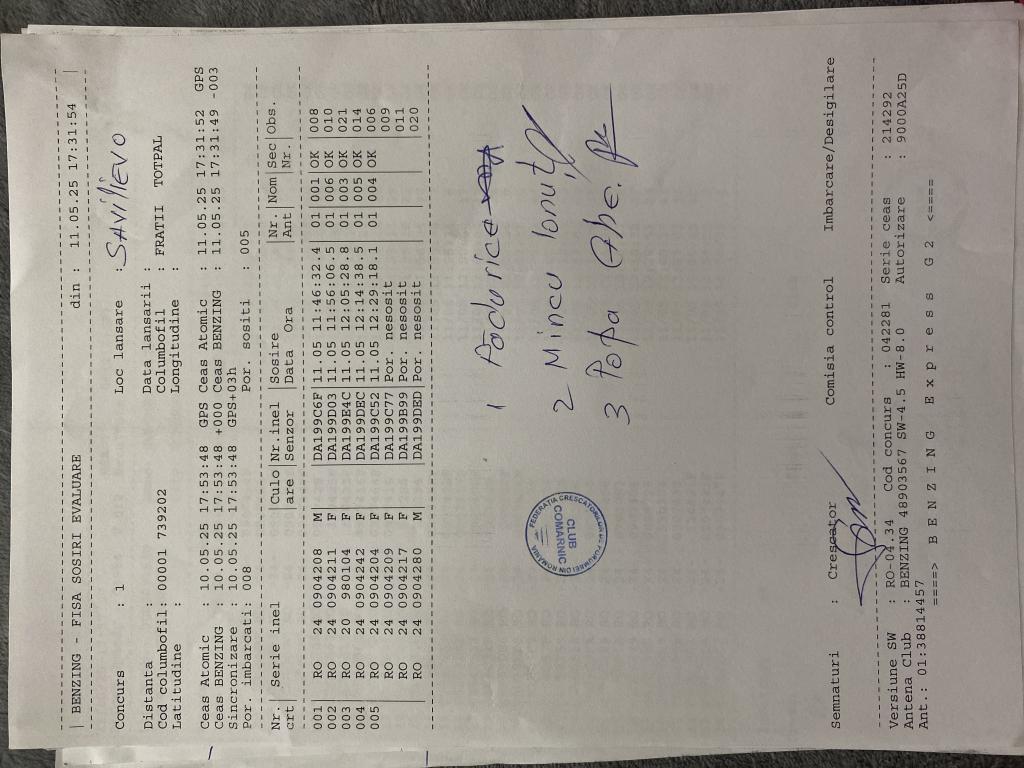 | BENZING - FISA SOSIRI EVALUARE din : 11.05.25 17:31:54 |
Concurs : 1 Loc lansare : SAVILIEVO
Distanta : Data lansarii :
Cod columbofil: 00001 739202 Columbofil : FRATII TOTPAL
Latitudine : Longitudine :
Ceas Atomic : 10.05.25 17:53:48 GPS Ceas Atomic : 11.05.25 17:31:52 GPS
Ceas BENZING : 10.05.25 17:53:48 +000 Ceas BENZING : 11.05.25 17:31:49 -003
Sincronizare : 10.05.25 17:53:48 GPS+03h
Por imbarcati: 008 Por. sositi : 005
Nr. Serie inel |Culo|Nr.inel |Sosire |Nr. |Nom|Sec|Obs.
crt |are |Senzor |Data Ora |Ant | |Nr.|
001 | RO 24 0904208 M |DA199C6F|11.05 11:46:32.4 |01 |001|OK |008
002 | RO 24 0904211 F |DA199D03|11.05 11:56:06.5 |01 |006|OK |010
003 | RO 20 980104 F |DA199E4C|11.05 12:05:28.8 |01 |003|OK |021
004 | RO 24 0904242 F |DA199DBC|11.05 12:14:38.5 |01 |005|OK |014
005 | RO 24 0904204 F |DA199C52|11.05 12:29:18.1 |01 |004|OK |006
| RO 24 0904209 F |DA199C77|Por. nesosit | | | |009
| RO 24 0904217 F |DA199B99|Por. nesosit | | | |011
| RO 24 0904280 M |DA199DED|Por. nesosit | | | |020
1
2 Mincu Ionuț
3 Popa Ghe.
CLUB
COMARNIC
Semnaturi : Crescator Comisia control Imbarcare/Desigilare
Versiune SW : RO-04.34 Cod concurs : 042281 Serie ceas : 214292
Antena Club : BENZING 48903567 SW-4.5 HW-8.0 Autorizare : 9000A25D
Ant.: 01:38814457
====> B E N Z I N G E x p r e s s G 2 <====